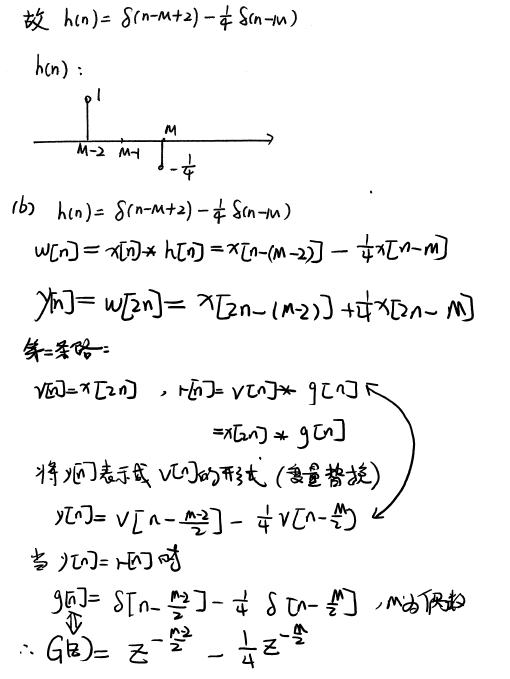 故 h(n) = δ(n-M+2) - 1/4 δ(n-M)
h(n):
1
M-2 M-1 M
-1/4
(b) h(n) = δ(n-M+2) - 1/4 δ(n-M)
w[n] = x[n] * h[n] = x[n-(M-2)] - 1/4 x[n-M]
y[n] = w[2n] = x[2n-(M-2)] + 1/4 x[2n-M]
v[n] = x[2n] , r[n] = v[n] * g[n]
= x[2n] * g[n]
将 y[n] 表示成 v[n] 的形式 (变量替换)
y[n] = v[n - (M-2)/2] - 1/4 v[n - M/2]
当 y[n] = r[n] 时
g[n] = δ[n - (M-2)/2] - 1/4 δ[n - M/2] , M为偶数
⇕
∴ G(z) = z^(-(M-2)/2) - 1/4 z^(-M/2)